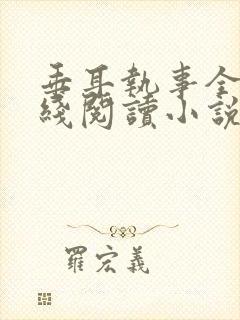 垂耳執事全
綫閱讀小說
羅宏義